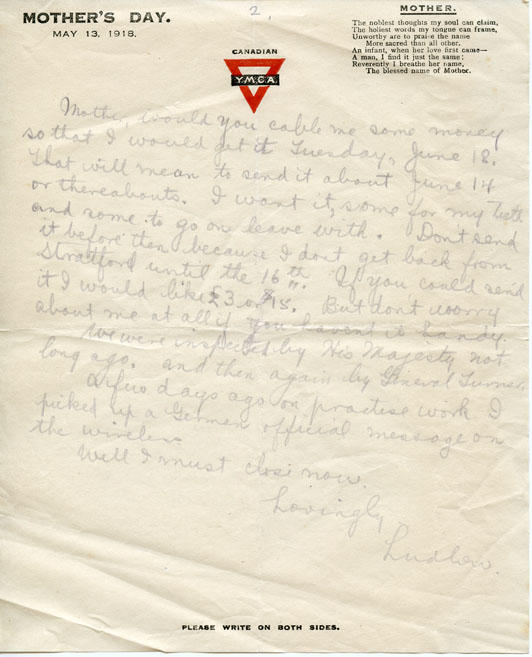 MOTHER'S DAY.
MAY 13, 1918.
2.
MOTHER.
The noblest thoughts my soul can claim,
The holiest words my tongue can frame,
Unworthy are to praise the name
More sacred than all other.
An infant, when her love first came—
A man, I find it just the same;
Reverently I breathe her name,
The blessed name of Mother.
CANADIAN
Y.M.C.A.
Mother, would you cable me some money
so that I would get it Tuesday, June 18.
That will mean to send it about June 14
or thereabouts. I want it, some for my teeth
and some to go on leave with. Don't send
it before then because I don't get back from
Stratford until the 16th. If you could send
it I would like £3 or $15. But dont worry
about me at all if you havent it handy.
We were inspected by His Majesty not
long ago. and then again by General Turner.
A few days ago on practise work I
picked up a German official message on
the wireless
Well I must close now.
Lovingly
Ludlow.
PLEASE WRITE ON BOTH SIDES.